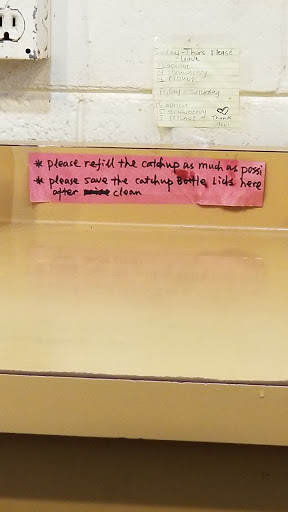 Sunday - Thurs Please
Leave
strawberry
Friday - Saturday
strawberry
Thank
you!
* please refill the catchup as much as possi
* please save the catchup Bottle Lids here
after clean